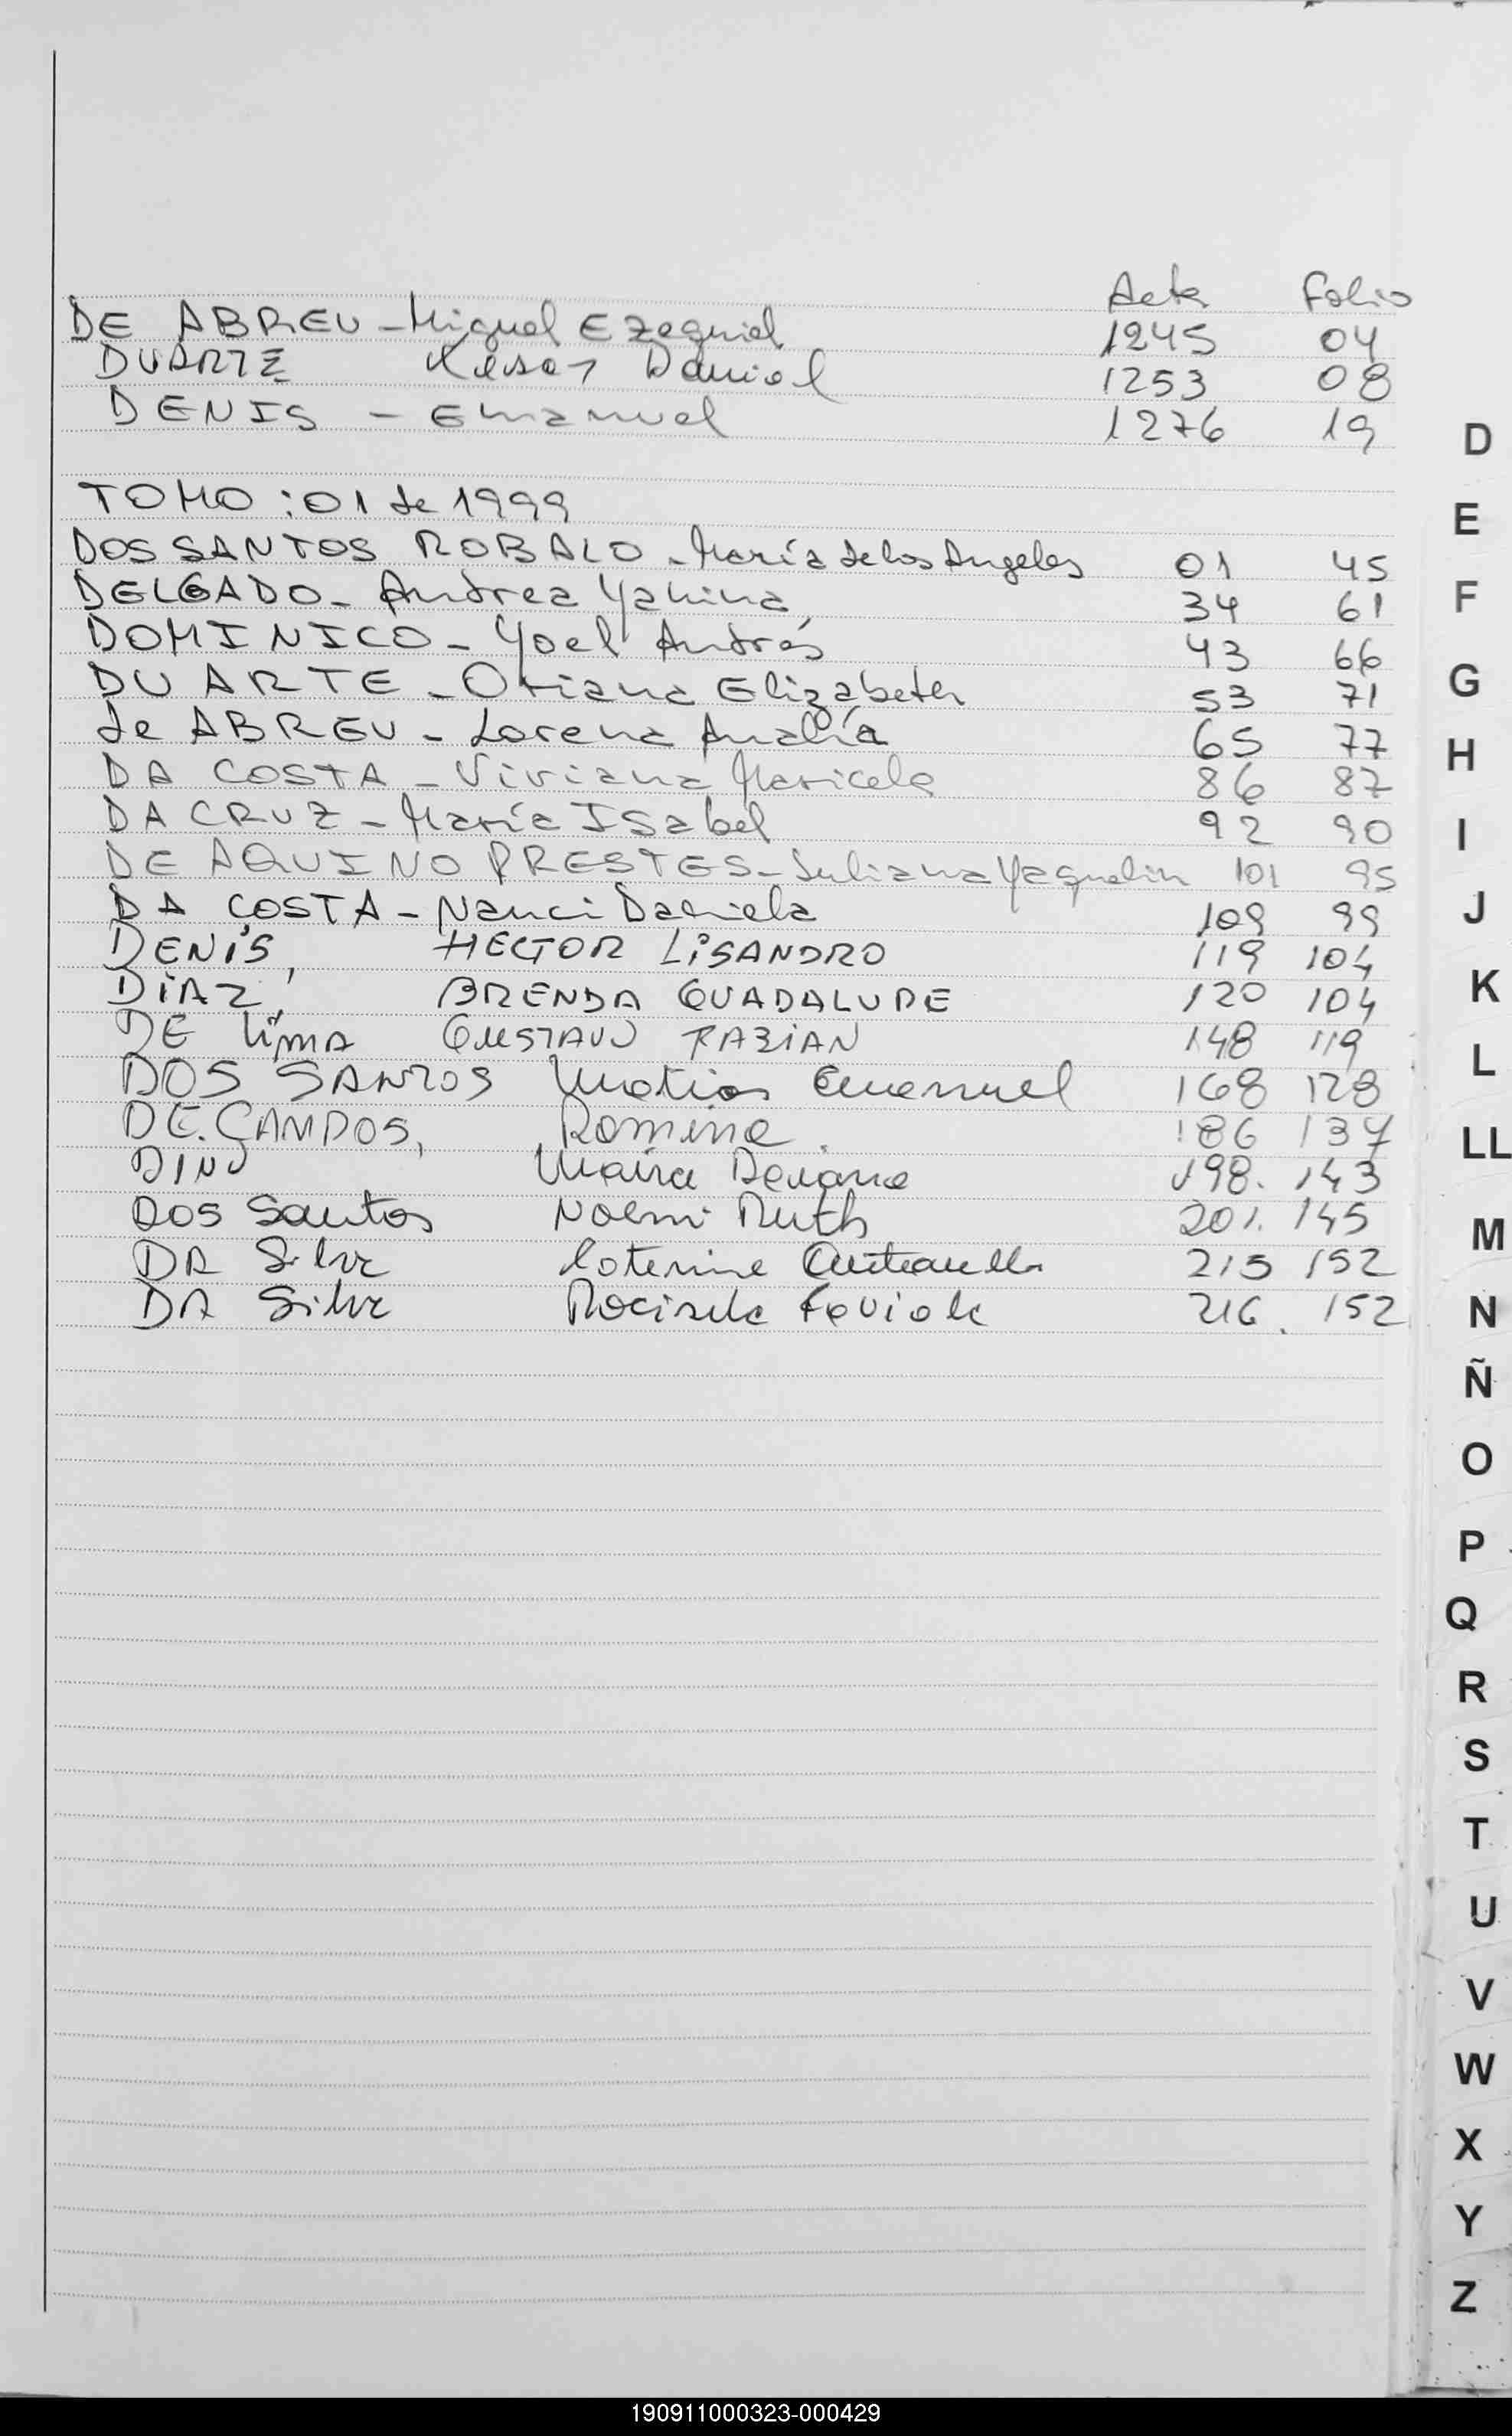 Acta Folio
DE ABREU - Miguel Ezequiel 1245 04
DUARTE Daniel 1253 08
DENIS - Emanuel 1276 19
TOMO : 01 de 1999
DOS SANTOS ROBALO - María de los Angeles 01 45
DELGADO - Andrea Yanina 34 61
DOMINICO - Yoel Andrés 43 66
DUARTE - Oriana Elizabeth 53 71
de ABREU - Lorena Analía 65 77
DA COSTA - Viviana Maricela 86 87
DA CRUZ - María Isabel 92 90
DE AQUINO PRESTES - Juliana Yaquelin 101 95
DA COSTA - Nanci Daniela 109 99
DENIS, HECTOR LISANDRO 119 104
DIAZ, BRENDA GUADALUPE 120 104
DE LIMA GUSTAVO FABIAN 148 119
DOS SANTOS Matias Emanuel 168 128
DE CAMPOS, Romina 186 137
DINO Maira 198. 143
DOS Santos Noemi Ruth 201. 145
DA Silva Antonella 215 152
DA Silva Faviola 216. 152
D
E
F
G
H
I
J
K
L
LL
M
N
Ñ
O
P
Q
R
S
T
U
V
W
X
Y
Z
190911000323-000429